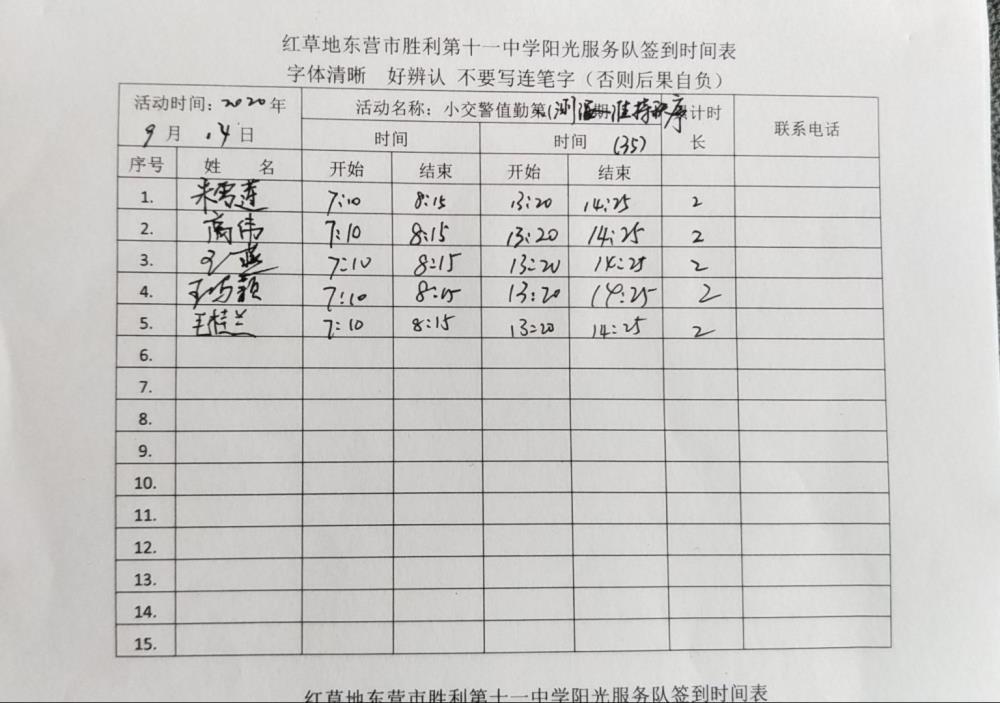 红草地东营市胜利第十一中学阳光服务队签到时间表
字体清晰 好辨认 不要写连笔字（否则后果自负）
活动时间：2020年 活动名称：小交警值勤第（测温 期 维持秩序 计时长 联系电话
9月14日 时间 时间 (35)
序号 姓 名 开始 结束 开始 结束
1. 7:10 8:15 13:20 14:25 2
2. 高伟 7:10 8:15 13:20 14:25 2
3. 7:10 8:15 13:20 14:25 2
4. 7:10 8:15 13:20 14:25 2
5. 王桂兰 7:10 8:15 13:20 14:25 2
6.
7.
8.
9.
10.
11.
12.
13.
14.
15.
红草地东营市胜利第十一中学阳光服务队签到时间表